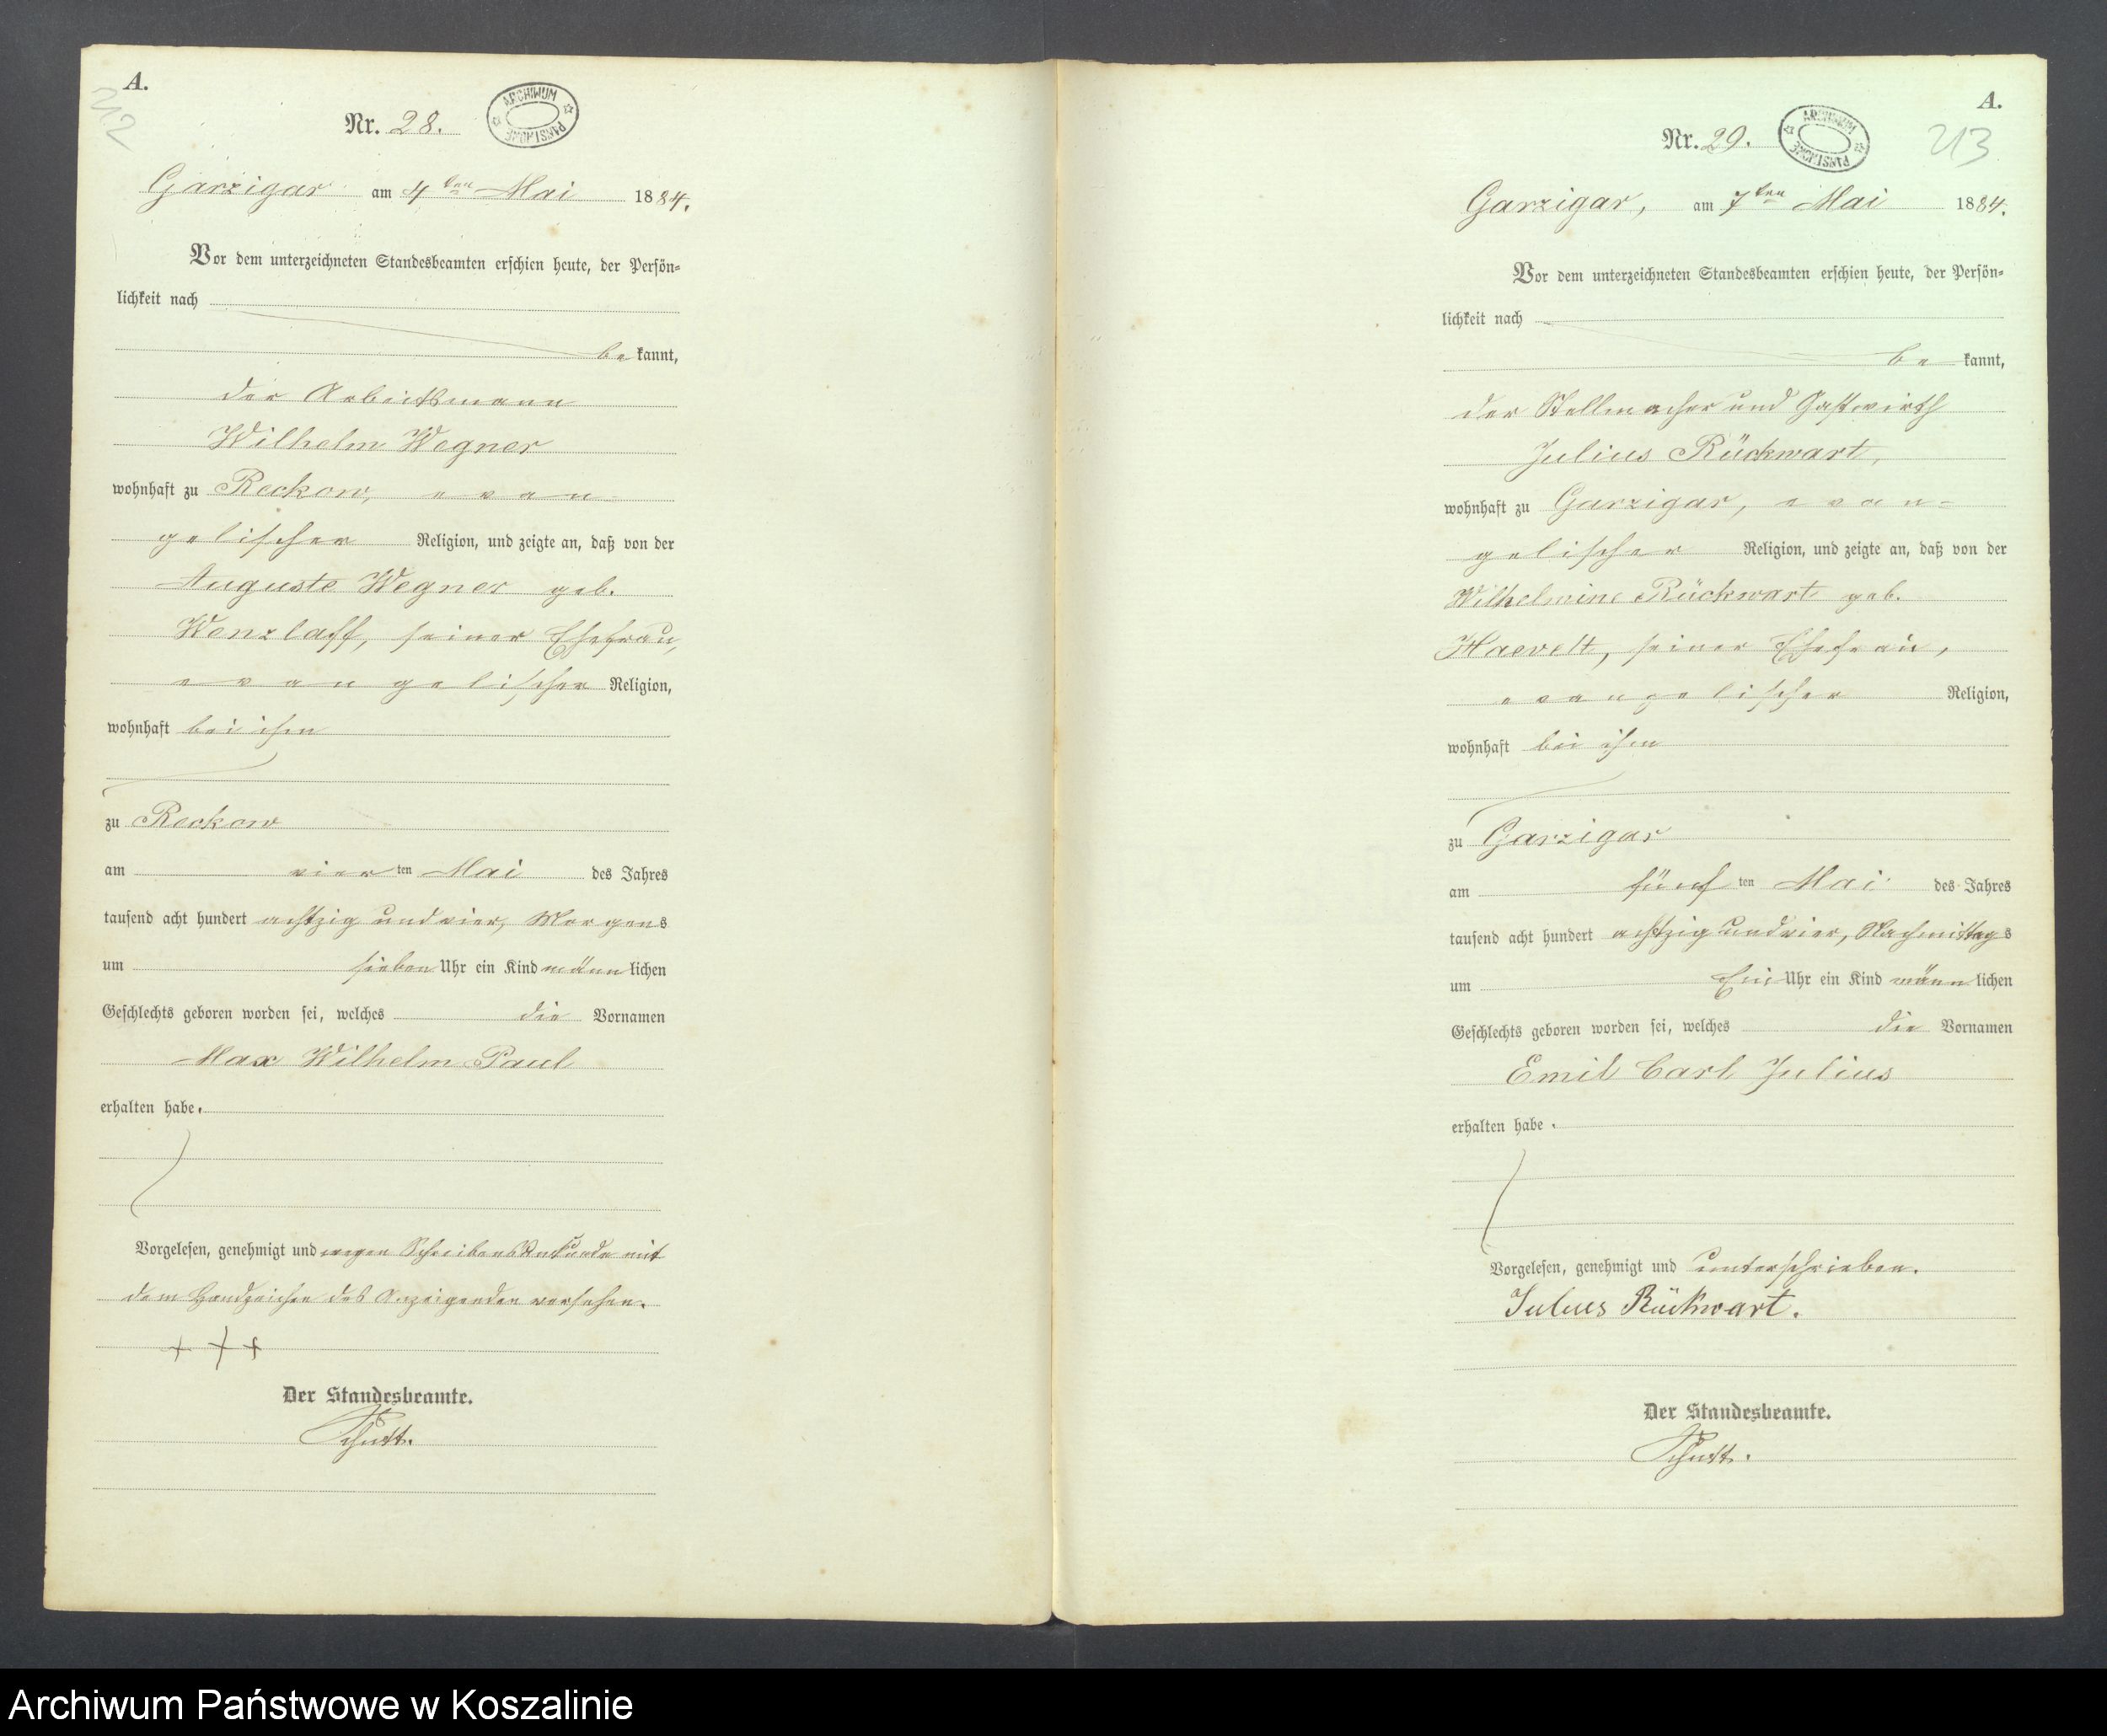 A.
212
Nr. 28.
ARCHIWUM PAŃSTWOWE
Garzigar am 4ten Mai 1884.
Vor dem unterzeichneten Standesbeamten erschien heute, der Persön-
lichkeit nach
be kannt,
der Arbeitsmann
Wilhelm Wegner
wohnhaft zu Reckow, evan-
gelischer Religion, und zeigte an, daß von der
Auguste Wegner geb.
Wenzlaff, seiner Ehefrau,
evangelischer Religion,
wohnhaft bei ihm
zu Reckow
am vier ten Mai des Jahres
tausend acht hundert achtzig und vier, Morgens
um sieben Uhr ein Kind männ lichen
Geschlechts geboren worden sei, welches die Vornamen
Max Wilhelm Paul
erhalten habe.
Vorgelesen, genehmigt und wegen Schreibensunkunde mit
dem Handzeichen des Anzeigenden versehen.
+ + +
Der Standesbeamte.
A.
213
Nr. 29.
ARCHIWUM PAŃSTWOWE
Garzigar, am 7ten Mai 1884.
Vor dem unterzeichneten Standesbeamten erschien heute, der Persön-
lichkeit nach
be kannt,
der Stellmacher und Gastwirth
Julius Rückwart,
wohnhaft zu Garzigar, evan-
gelischer Religion, und zeigte an, daß von der
Wilhelmine Rückwart geb.
seiner Ehefrau,
evangelischer Religion,
wohnhaft bei ihm
zu Garzigar
am fünf ten Mai des Jahres
tausend acht hundert achtzig und vier, Nachmittags
um Ein Uhr ein Kind männ lichen
Geschlechts geboren worden sei, welches die Vornamen
Emil Carl Julius
erhalten habe.
Vorgelesen, genehmigt und unterschrieben.
Julius Rückwart.
Der Standesbeamte.
Archiwum Państwowe w Koszalinie